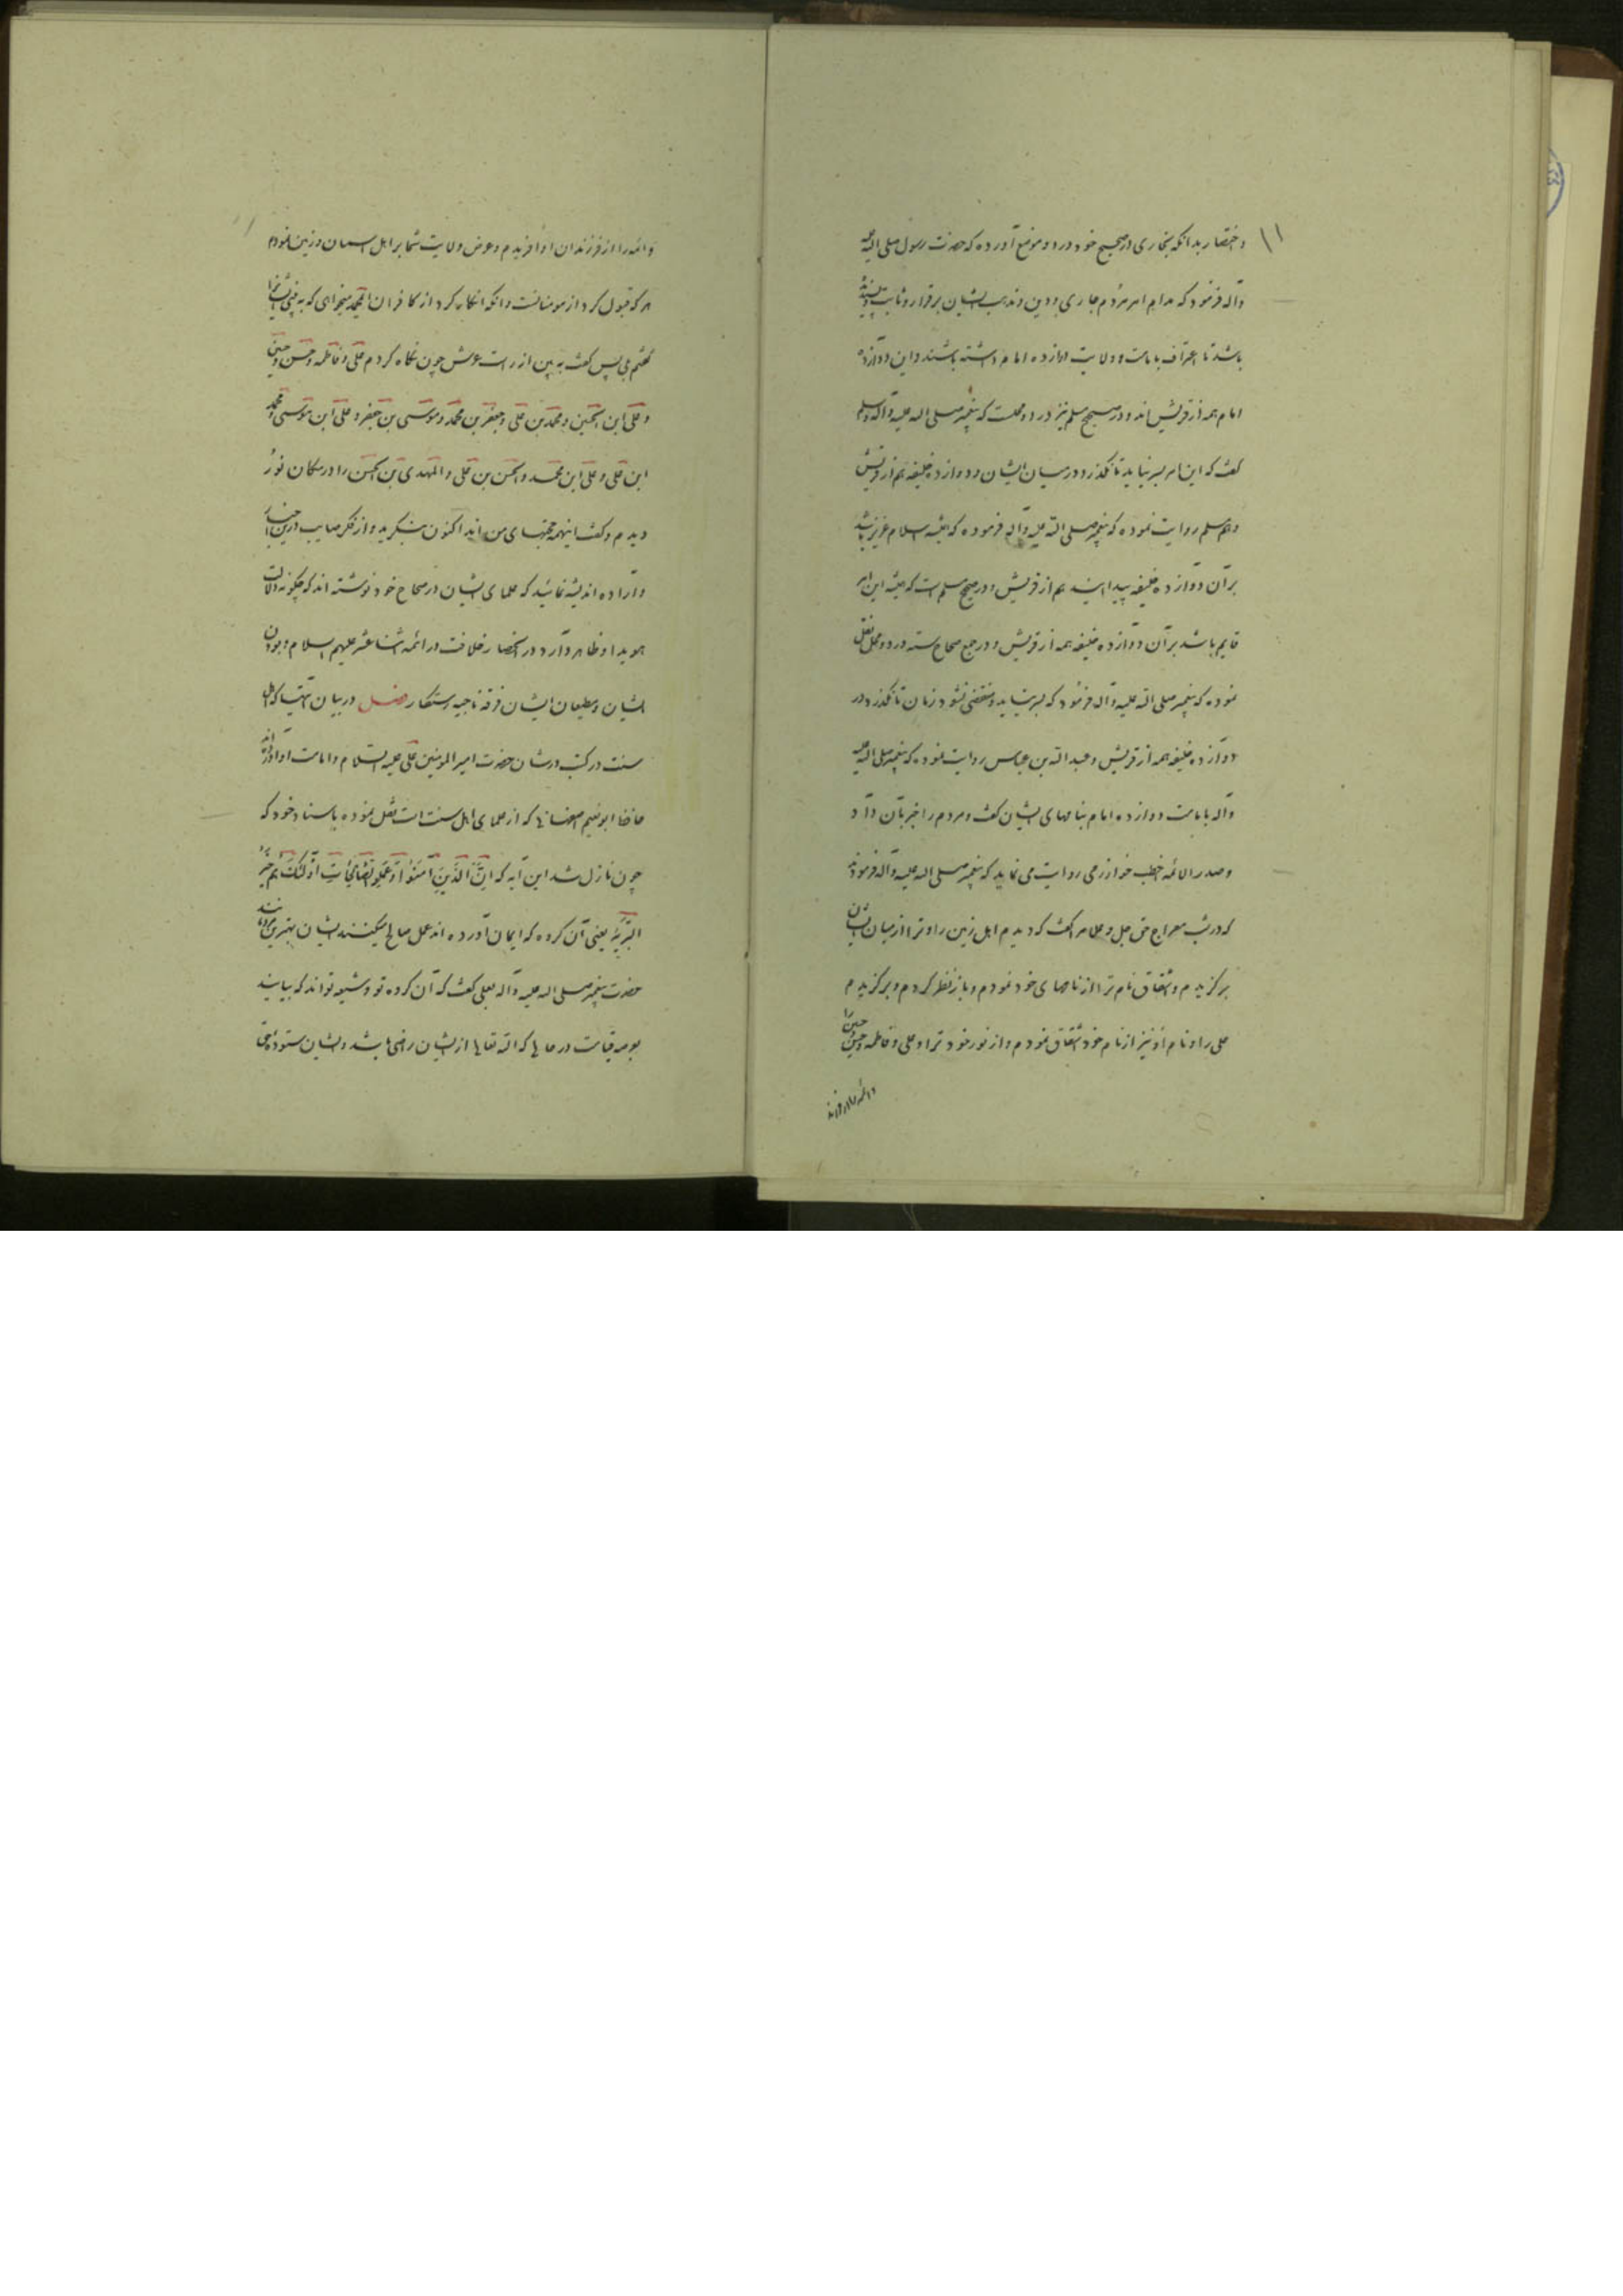 ۱۱
و اختصار بدانکه بخاری در صحیح خود در دو موضع آورده که حضرت رسول صلی الله علیه
وآله فرمود که مدام امر مردم جاری و دین و مذهب ایشان برقرار و ثابت
باشد تا اعتراف بامامت و ولایت دوازده امام داشته باشند و این دوازده
امام همه از قریش اند و در صحیح مسلم نیز در دو محلست که پیغمبر صلی الله علیه وآله وسلم
گفت که این امر بسر نیاید تا نگذرد در میان ایشان دوازده خلیفه هم از قریش
و هم مسلم روایت نموده که پیغمبر صلی الله علیه وآله فرموده که همیشه اسلام عزیز باشد
بر آن دوازده خلیفه پیدا آیند هم از قریش و در صحیح مسلم است که همیشه این امر
قایم باشد بر آن دوازده خلیفه همه از قریش و در جمع صحاح سته در دو محل نقل
نموده که پیغمبر صلی الله علیه وآله فرمود که بسر نیاید و منقضی نشود زمان تا نگذرد در
دوازده خلیفه همه از قریش و عبد الله بن عباس روایت نموده که پیغمبر صلی الله علیه
وآله بامامت دوازده امام بنامهای ایشان گفت و مردم را خبر بآن داد
و صدر الائمه اخطب خوارزمی روایت می نماید که پیغمبر صلی الله علیه وآله فرمودند
که در شب معراج حق جل و علا مرا گفت که دیدم اهل زمین را و ترا از میان ایشان
برگزیدم و اشتقاق نام ترا از نامهای خود نمودم و باز نظر کردم و برگزیدم
علی را و نام او نیز از نام خود اشتقاق نمودم و از نور خود ترا و علی و فاطمه و حسن و حسین را
و ائمه را از فرزند
و ائمه را از فرزندان او آفریدم و عرض ولایت شما بر اهل اسمان و زمین نمودم
هر که قبول کرد از مومنانست و انکه انکار کرد از کافران ای محمد میخواهی که به بینی ایشان را
گفتم بلی پس گفت به بین از راست عرش چون نگاه کردم علی و فاطمه و حسن و حسین
و علی ابن الحسین و محمد بن علی و جعفر بن محمد و موسی بن جعفر و علی ابن موسی و محمد
ابن علی و علی ابن محمد و الحسن بن علی و المهدی بن الحسن را در مکان نور
دیدم و گفت اینهمه حجتهای من اند اکنون بنگرید و از فکر صایب درین اخبار
اندیشه نمائید که علمای ایشان در صحاح خود نوشته اند که چگونه دلالت
هویدا و ظاهر دارد در انحصار خلافت در ائمه اثنا عشر علیهم السلام و بودن
ایشان و مطیعان ایشان فرقه ناجیه رستگار فصل در بیان آنهاست که اهل
سنت در کتب در شان حضرت امیر المومنین علی علیه السلام و امامت او آورده اند
حافظ ابو نعیم اصفهانی که از علمای اهل سنت است نقل نموده باسناد خود که
چون نازل شد این آیه که اِنَّ الَّذینَ آمَنُوا وَ عَمِلُوا الصّالِحاتِ اُولئِکَ هُم خَیرُ
البَرِیَّه یعنی آن گروه که ایمان آورده اند عمل صالح میکنند ایشان بهترین
حضرت پیغمبر صلی الله علیه وآله بعلی گفت که آن گروه تو و شیعه تواند که بیایند
بعرصه قیامت در حالی که الله تعالی از ایشان راضی باشد و ایشان ستوده حق